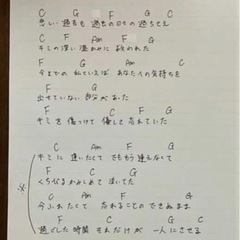 C G F G C
悲しい過去も 過去の日々の過ちさえ
C G Am F
キミの深い温かみに救われた
F C F G
今までの私でいえば あなたへの気持ちを
F G
出せていない部分があった
C F Am F G
キミを傷つけて 優しく忘れていた
C G Am F
※ キミに逢いたくて でももう逢えなくて
F C G
くちびるかみしめて 泣いてた
C G Am F
今ふれたくて 忘れることのできぬまま
F C G C
過ごした時間 それだけが 一人にさせる